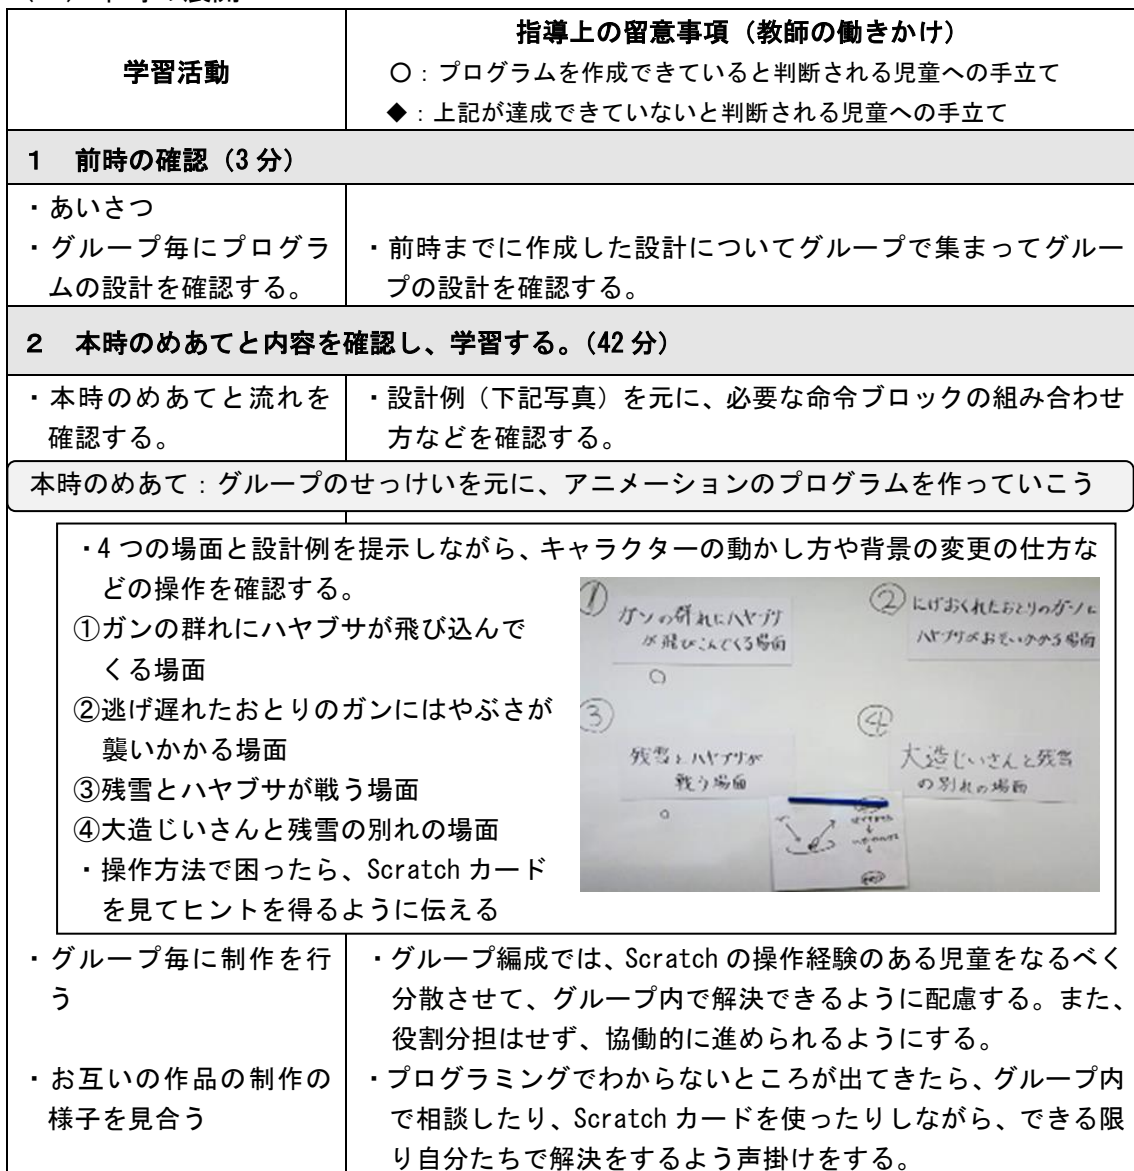 学習活動
指導上の留意事項（教師の働きかけ）
〇：プログラムを作成できていると判断される児童への手立て
◆：上記が達成できていないと判断される児童への手立て
１　前時の確認（3 分）
・あいさつ
・グループ毎にプログラ
ムの設計を確認する。
・前時までに作成した設計についてグループで集まってグルー
プの設計を確認する。
２　本時のめあてと内容を確認し、学習する。（42 分）
・本時のめあてと流れを
確認する。
・設計例（下記写真）を元に、必要な命令ブロックの組み合わせ
方などを確認する。
本時のめあて：グループのせっけいを元に、アニメーションのプログラムを作っていこう
・4 つの場面と設計例を提示しながら、キャラクターの動かし方や背景の変更の仕方な
どの操作を確認する。
①ガンの群れにハヤブサが飛び込んで
くる場面
②逃げ遅れたおとりのガンにはやぶさが
襲いかかる場面
③残雪とハヤブサが戦う場面
④大造じいさんと残雪の別れの場面
・操作方法で困ったら、Scratch カード
を見てヒントを得るように伝える
①
ガンの群れにハヤブサ
が飛びこんでくる場面
②
にげおくれたおとりのガンに
ハヤブサがおそいかかる場面
③
残雪とハヤブサが
戦う場面
④
大造じいさんと残雪
の別れの場面
・グループ毎に制作を行
う
・グループ編成では、Scratch の操作経験のある児童をなるべく
分散させて、グループ内で解決できるように配慮する。また、
役割分担はせず、協働的に進められるようにする。
・お互いの作品の制作の
様子を見合う
・プログラミングでわからないところが出てきたら、グループ内
で相談したり、Scratch カードを使ったりしながら、できる限
り自分たちで解決をするよう声掛けをする。